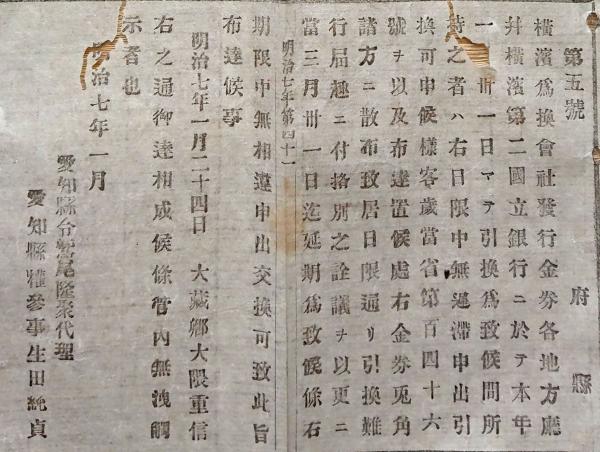 第五號
府縣
橫濱爲換會社發行金券各地方廳
幷橫濱第二國立銀行ニ於テ本年
一 卅一日マテ引換爲致候間所
持之者ハ右日限中無遲滯申出引
換可申候樣客歲當省第百四十六
號ヲ以及布達置候處右金券兎角
諸方ニ散布致居日限通リ引換難
行屆趣ニ付格別之詮議ヲ以更ニ
當三月卅一日迄延期爲致候條右
明治七年第四十一
期限中無相違申出交換可致此旨
布達候事
明治七年一月二十四日 大藏卿大隈重信
右之通御達相成候條管內無洩
示者也
明治七年一月
愛知縣令鷲尾隆聚代理
愛知縣權參事生田純貞